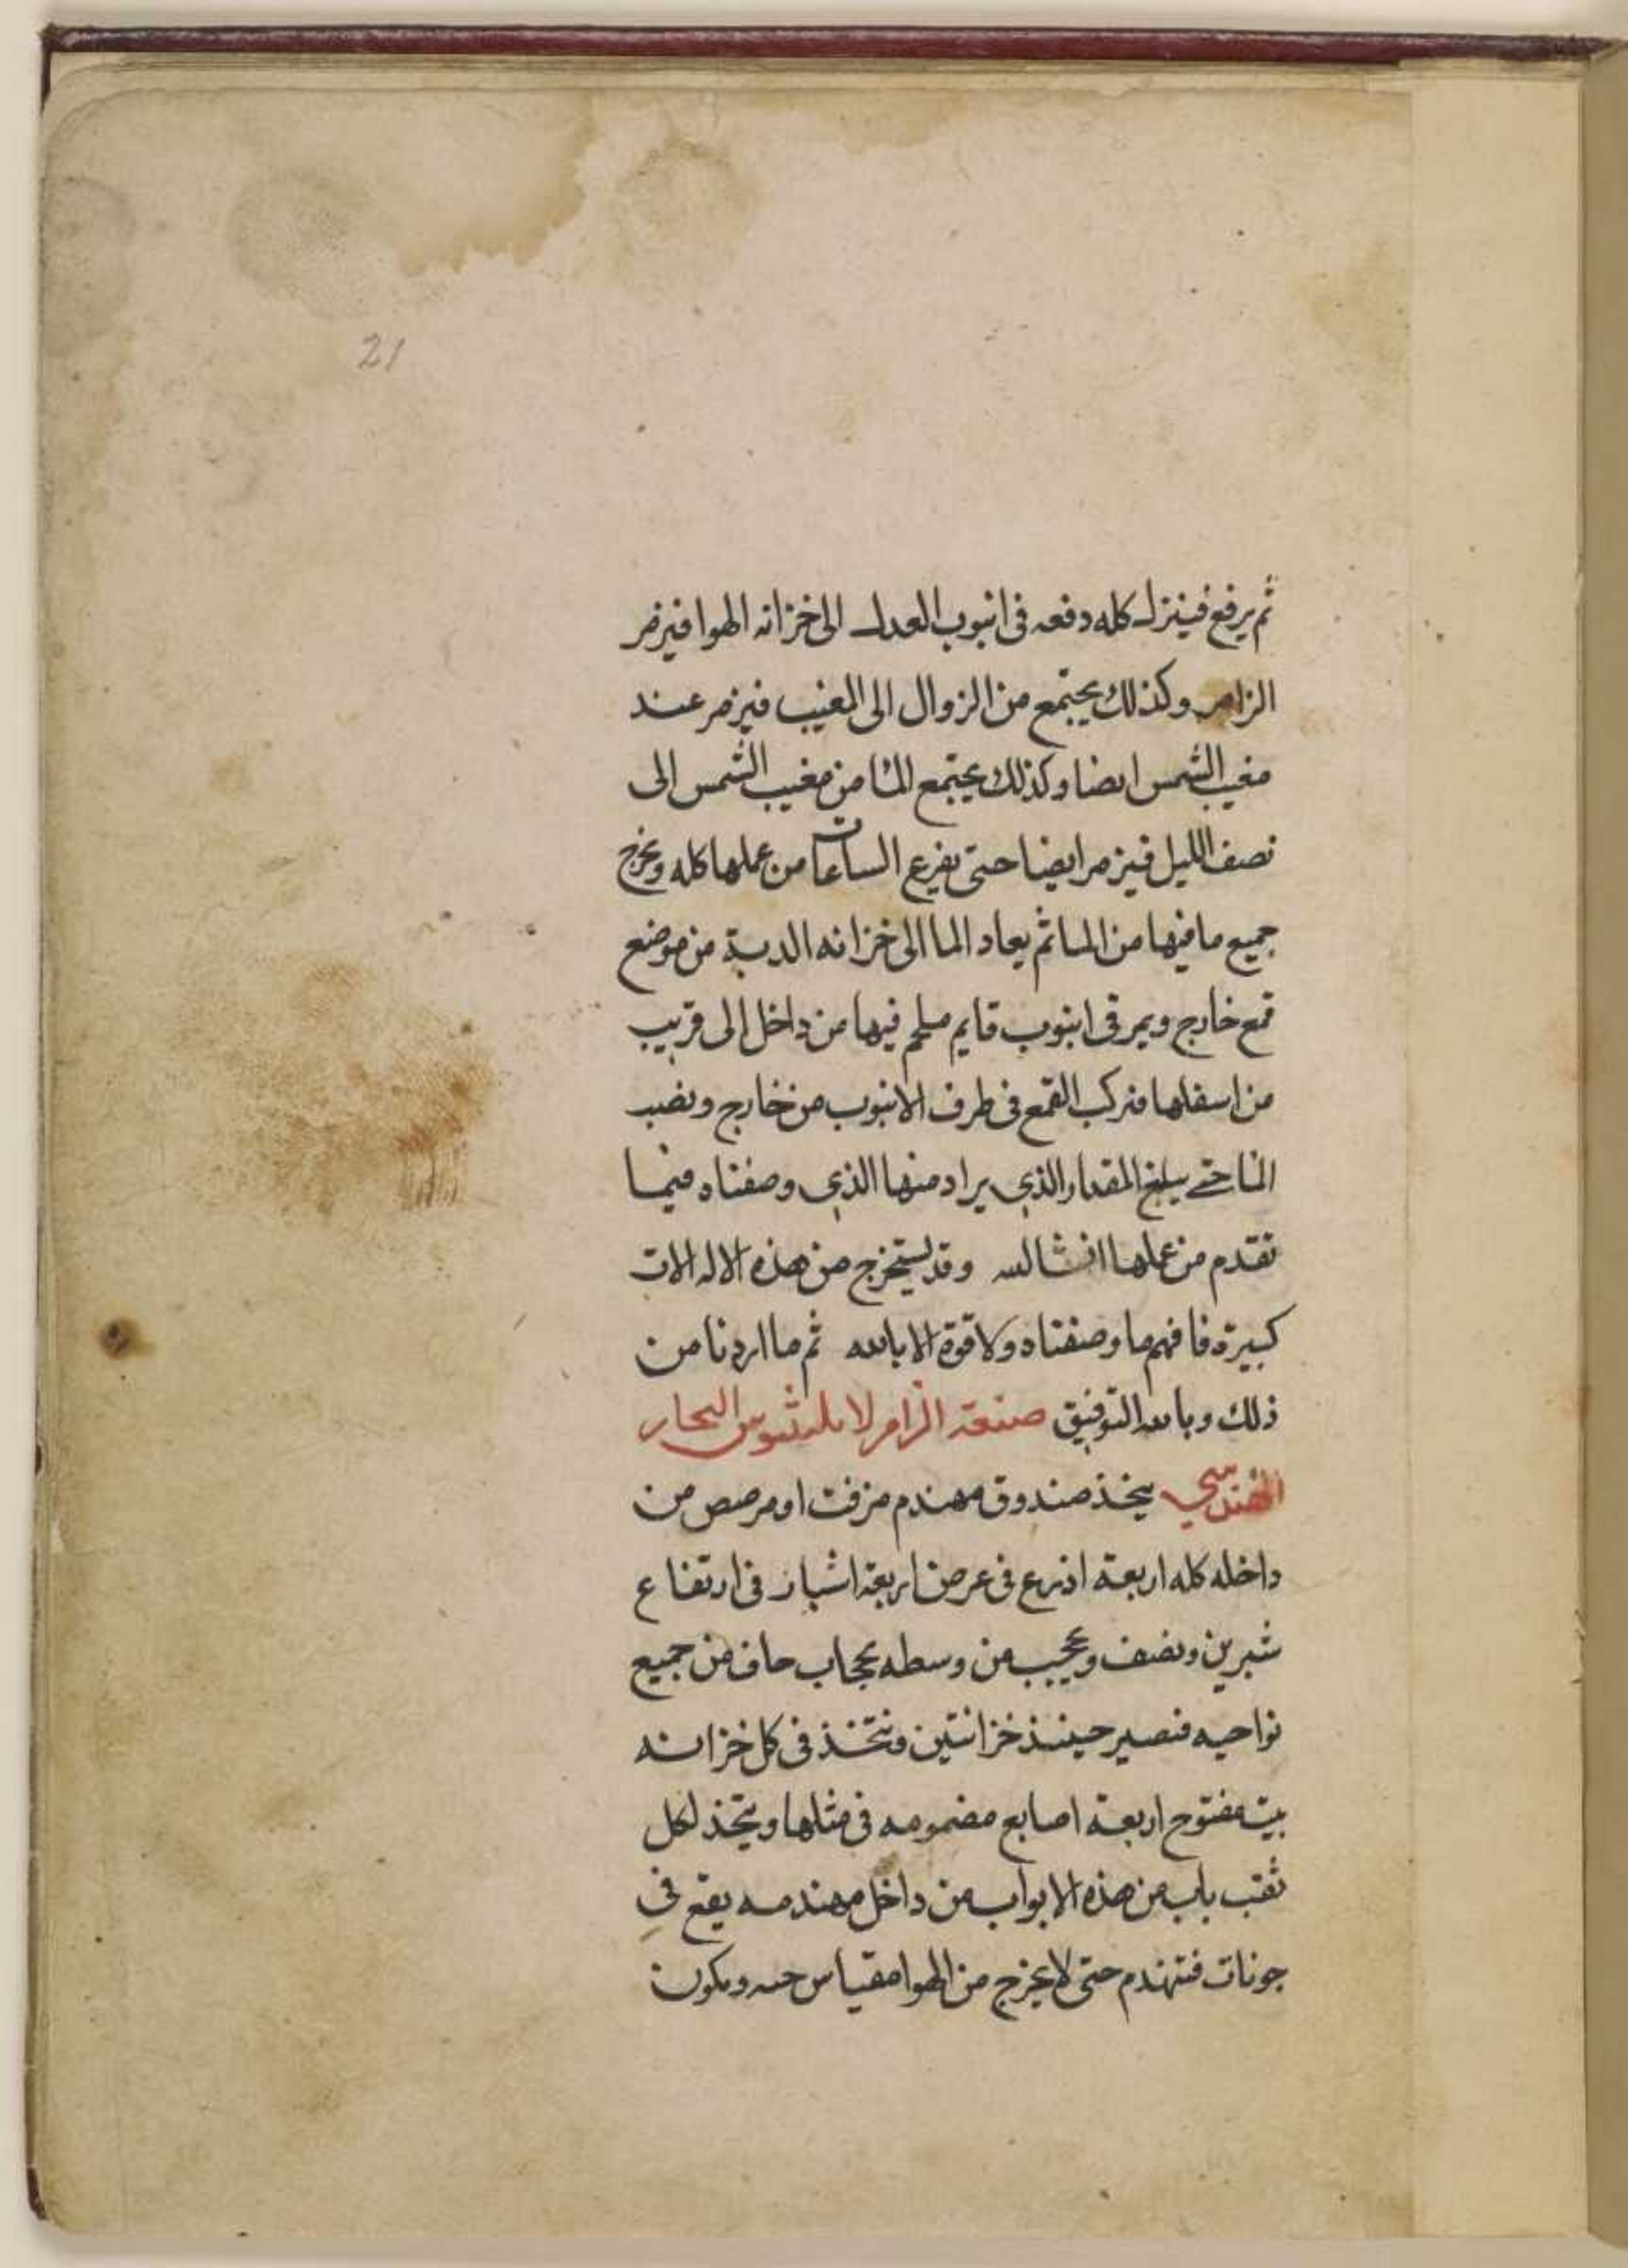 21
ثم يرفع فينزل كله دفعه فى انبوب العدل الى خزانه الهوا فيزمر
الزامر وكذلك يجتمع من الزوال الى المغيب فيزمر عند
مغيب الشمس ايضا وكذلك يجتمع الما من مغيب الشمس الى
نصف الليل فيزمر ايضا حتى يفرغ الساعات من عملها كله ويخرج
جميع ما فيها من الما ثم يعاد الما الى خزانه الدبة من موضع
قمع خارج ويمر فى انبوب قايم ملحم فيها من داخل الى قريب
من اسفلها فتركب القمع فى طرف الانبوب من خارج وتصب
الما حتى يبلغ المقدار الذي يراد منها الذي وصفناه فيما
تقدم من عملها انشالله وقد يستخرج من هذه الاله الات
كبيرة فافهم ما وصفناه ولا قوة الا بالله ثم ما اردنا من
ذلك وبالله التوفيق صنعة الزامر لابلينوس النجار
الهندسي يتخذ صندوق مهندم مزفت او مرصص من
داخله كله اربعة اذرع فى عرض اربعة اشبار فى ارتفاع
شبرين ونصف ويحجب من وسطه بحجاب حاف من جميع
نواحيه فتصير حينئذ خزانتين وتتخذ فى كل خزانه
بيت مفتوح اربعة اصابع مضمومه فى مثلها ويتخذ لكل
ثقب باب من هذه الابواب من داخل مهندمه يقع فى
جونات فتهندم حتى لا يخرج من الهوا مقياس حسه ويكون